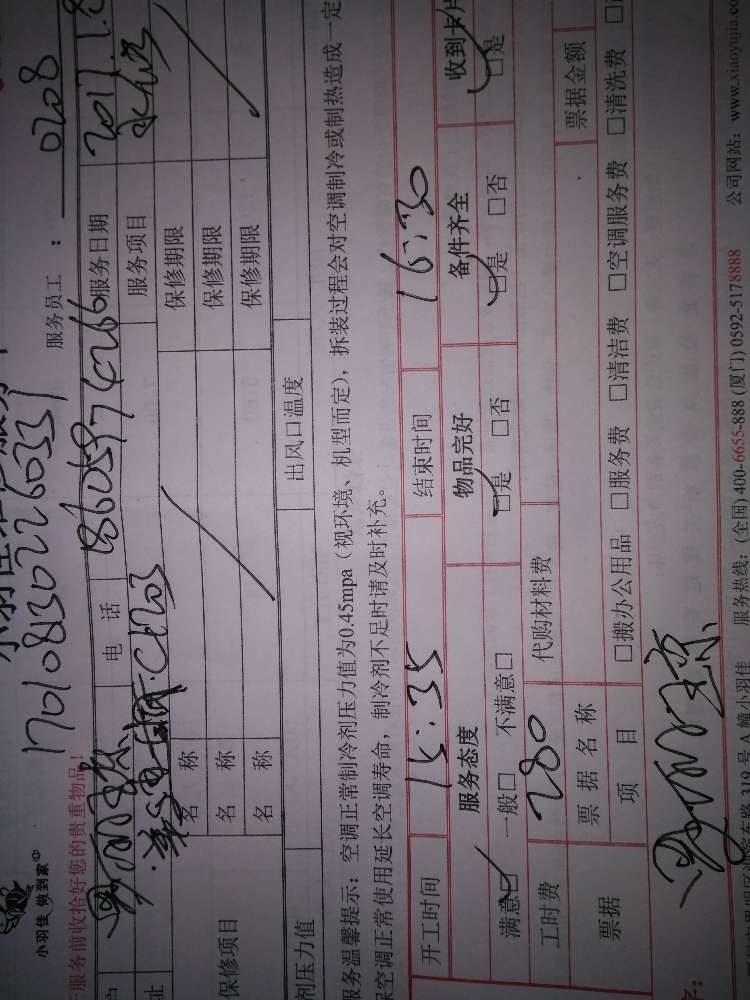 小羽佳 做到家
小羽佳
1701081302260331
服务员工： 0208
服务前收拾好您的贵重物品！
电话
服务日期 2017.1.8
服务项目
保修项目
名称 保修期限
名称 保修期限
名称 保修期限
剂压力值 出风口温度
服务温馨提示：空调正常制冷剂压力值为0.45mpa（视环境、机型而定），拆装过程会对空调制冷或制热造成一定
空调正常使用延长空调寿命，制冷剂不足时请及时补充。
开工时间 15:35 结束时间 16:30
服务态度 物品完好 备件齐全 收到卡片
满意□ 一般□ 不满意□ □是 □否 □是 □否 □是
工时费 280 代购材料费
票据 票据名称 票据金额
项目 □搬办公用品 □服务费 □清洁费 □空调服务费 □清洗费
319号A幢小羽佳 服务热线：(全国) 400-6655-888 (厦门) 0592-5178888 公司网站：www.xiaoyujia.co